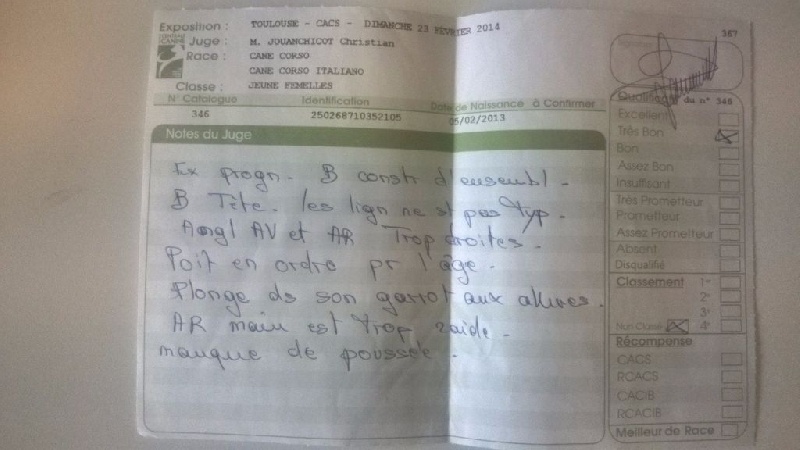 Exposition : TOULOUSE - CACS - DIMANCHE 23 FEVRIER 2014
CENTRALE CANINE
Juge : M. JOUANCHICOT Christian
Race : CANE CORSO
CANE CORSO ITALIANO
Classe : JEUNE FEMELLES
N° Catalogue Identification Date de Naissance à Confirmer
346 250268710352105 05/02/2013
Notes du Juge
Ex progn. B constr d'ensembl.
B Tête. les lign ne st pas typ.
Angl AV et AR Trop droites.
Poit en ordre pr l'âge.
Plonge ds son garrot aux allures.
AR main est trop raide.
manque de poussée.
387
Qualificatif du n° 346
Excellent
Très Bon
Bon
Assez Bon
Insuffisant
Très Prometteur
Prometteur
Assez Prometteur
Absent
Disqualifié
Classement 1er
2e
3e
Non Classé 4e
Récompense
CACS
RCACS
CACIB
RCACIB
Meilleur de Race